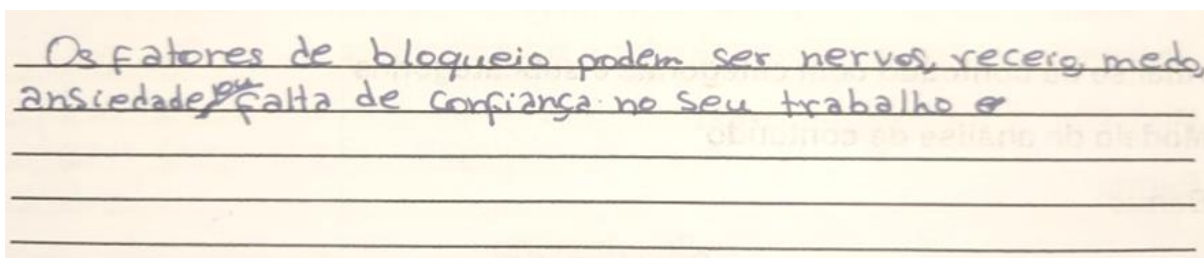 Os fatores de bloqueio podem ser nervos, receio, medo,
ansiedade ou falta de confiança no seu trabalho